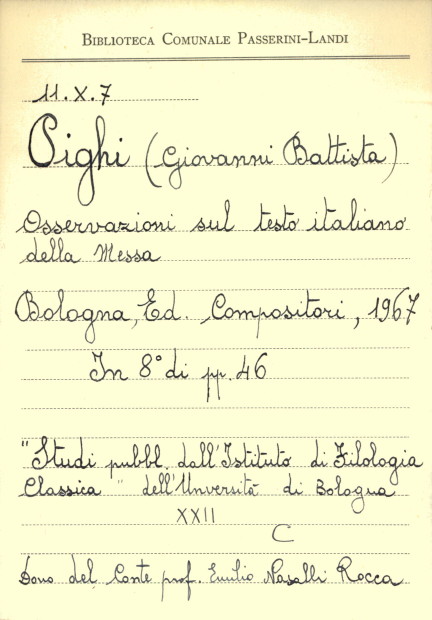 BIBLIOTECA COMUNALE PASSERINI-LANDI
11.X.7
Pighi (Giovanni Battista)
Osservazioni sul testo italiano
della Messa
Bologna, Ed. Compositori, 1967
In 8° di pp. 46
"Studi pubbl. dall'Istituto di Filologia
Classica" dell'Unversità di Bologna
XXII
C
Dono del Conte prof. Emilio Nasalli Rocca